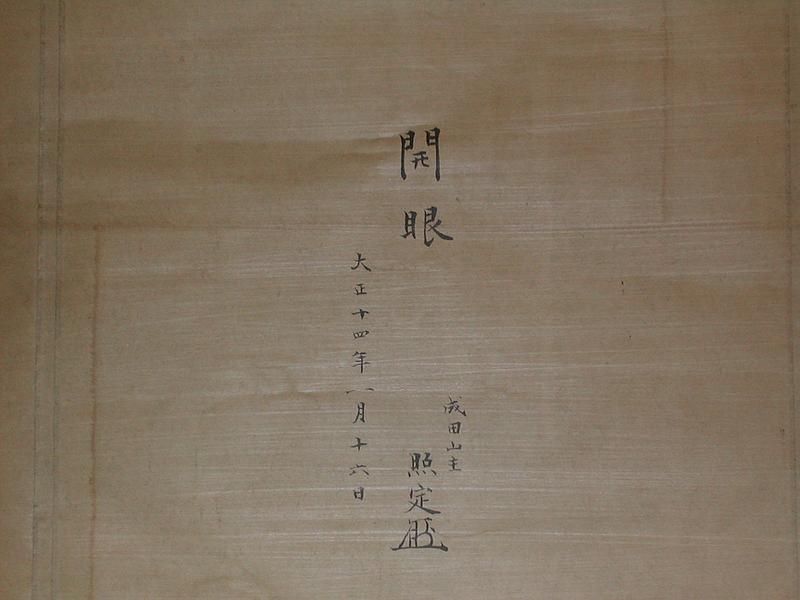 開眼
成田山主
照定
大正十四年一月十六日